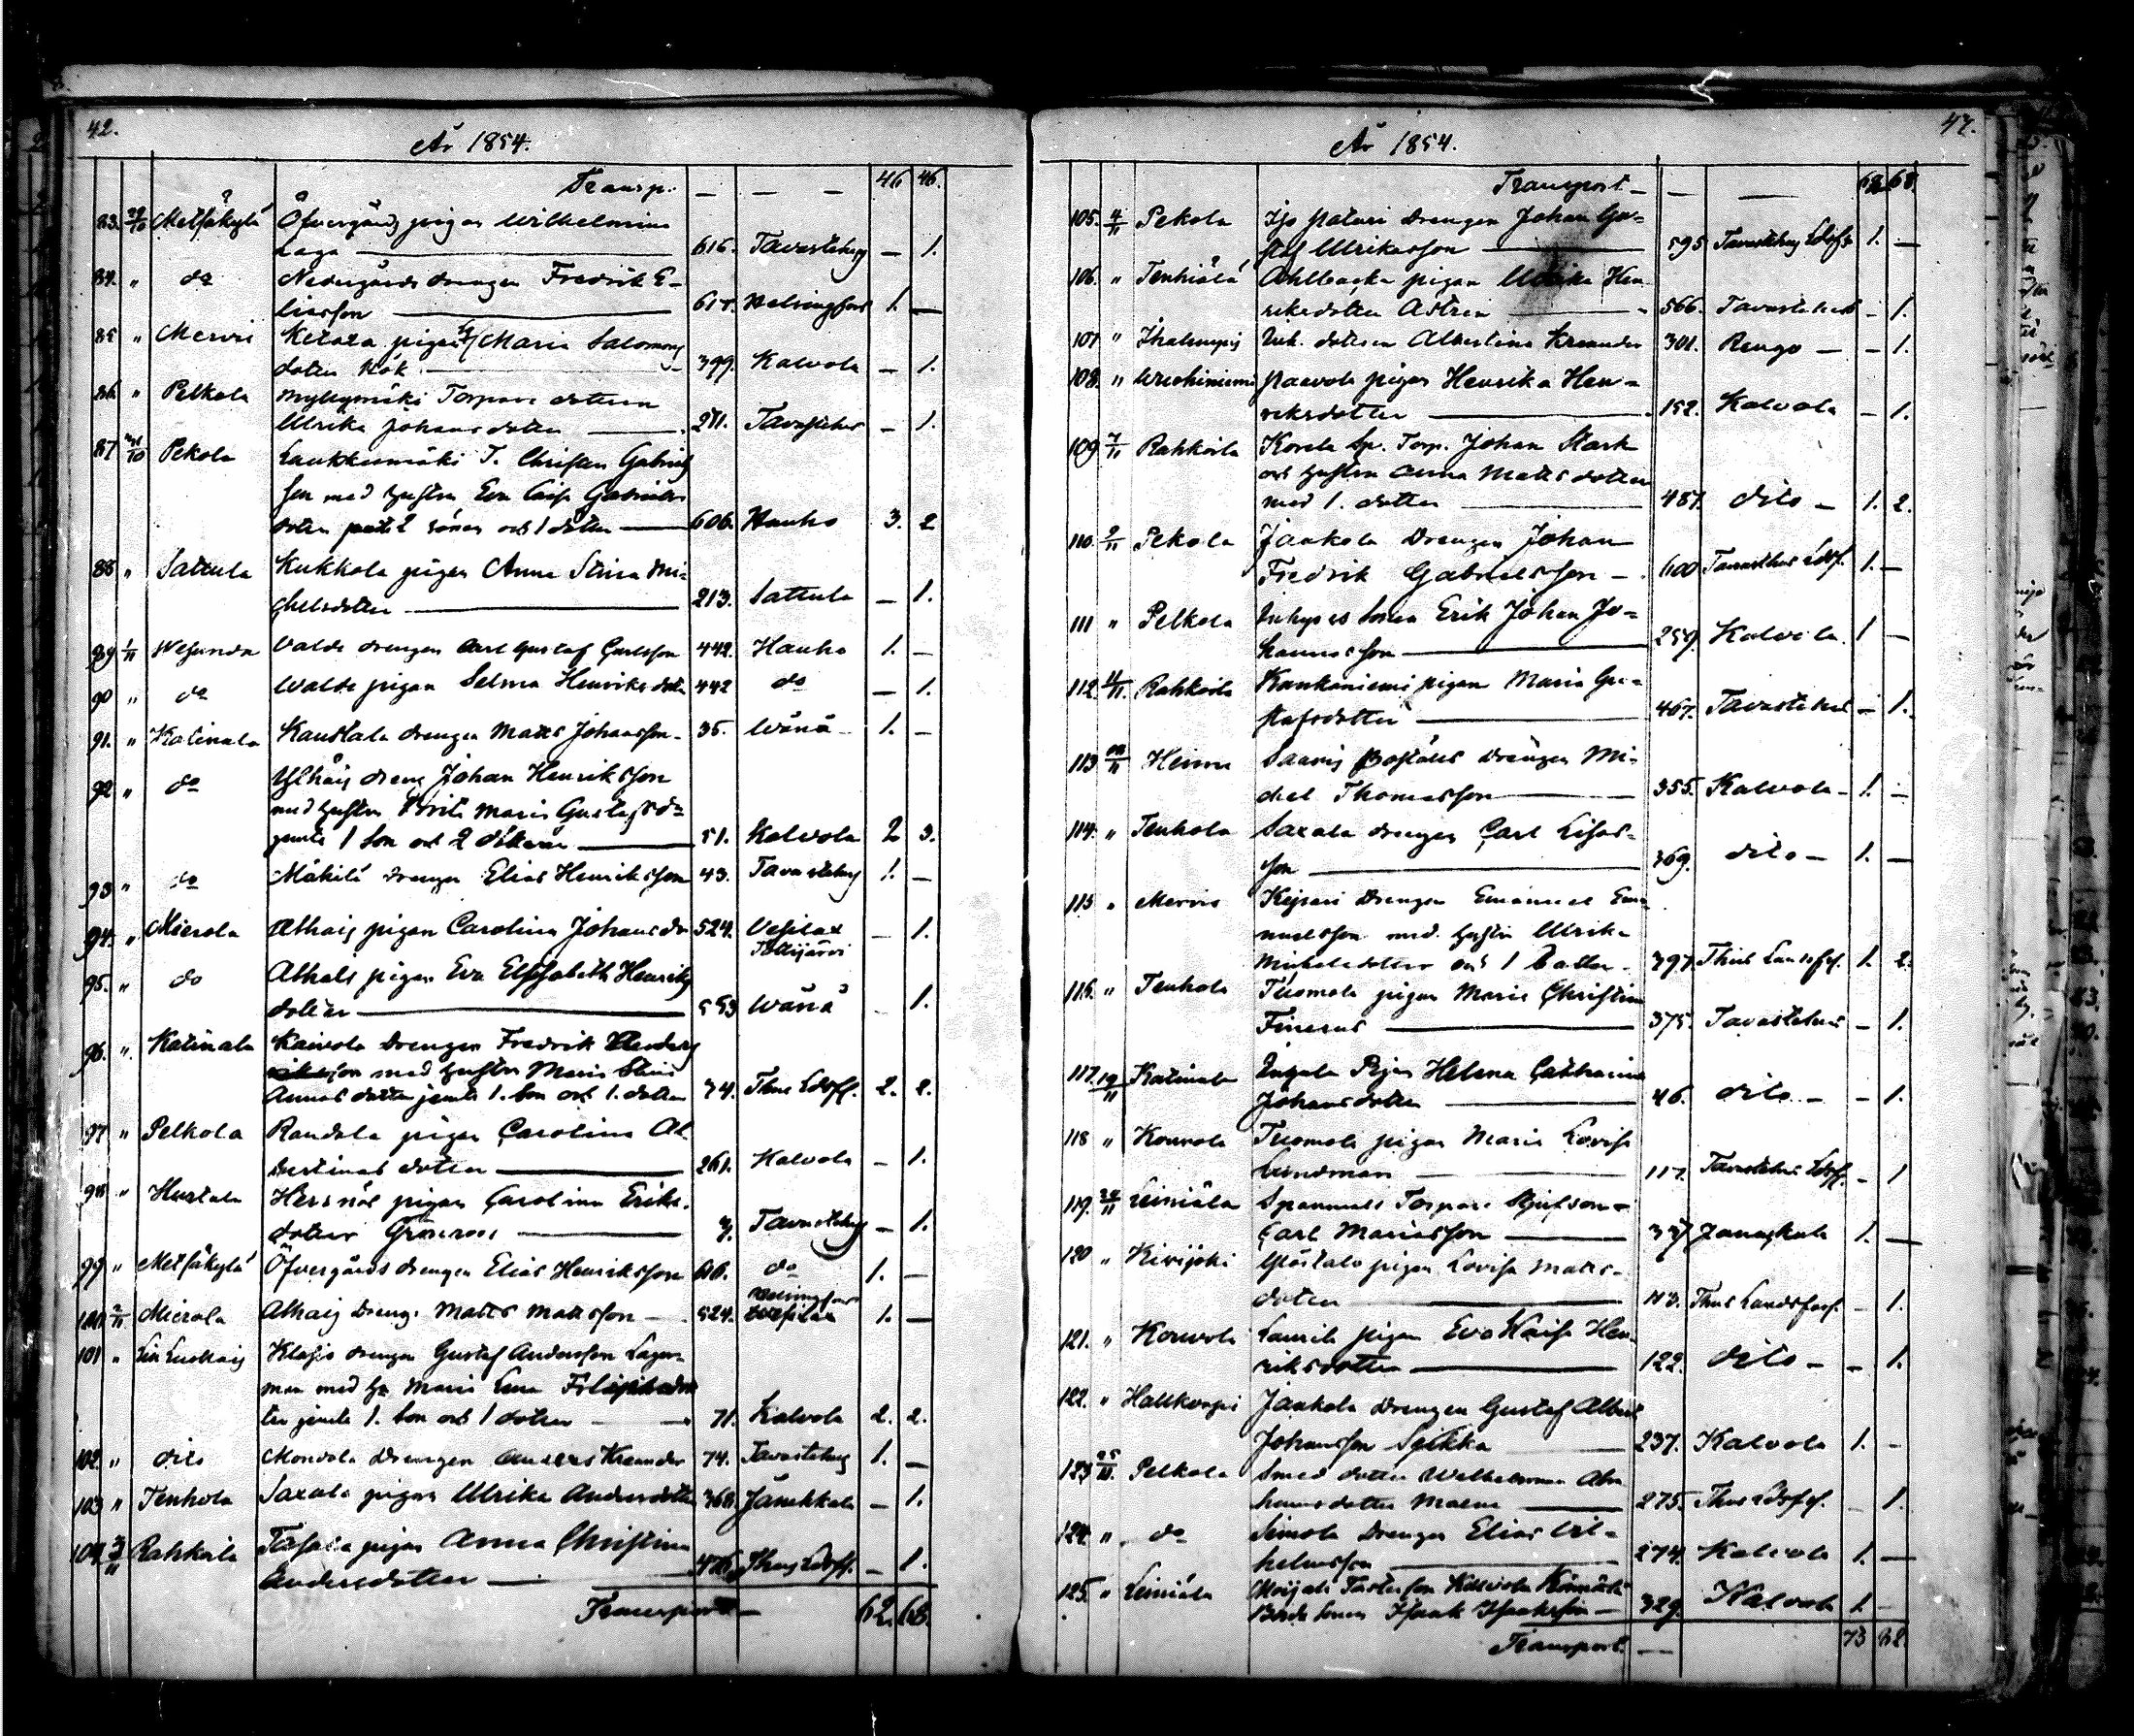 42.
År 1854.
Transp. — — — 46 46.
83. 29/10 Metsäkylä Öfvergårds pigan Wilhelmina
Laga — 616. Tavastehus — 1.
84. " do Nedergårds drengen Fredrik E-
liasson — Helsingfors 1. —
85 " Mervi Ketara pigan Maria Salomons
doter Kök — 399. Kalvola — 1.
86. " Pelkola Myllymäki Torpare dottren
Ulrika Johansdotter — 271. Tavastehus — 1.
87 Pekola Laukkasmäki T. Christian Gabriels
son med hustru Eva Caisa Gabriels
doter 2 söner och 1 dotter — 606. Hauho 3. 2
88 " Sattula Kukkola pigan Anna Stina Mi-
chelsdotter — 213. Sattula — 1.
89 1/11 Wesunda Valde drengen Carl Gustaf Carlsson 442. Hauho 1. —
90 " do Walde pigan Selma Henriksdotr 442 do — 1.
91. " Katinala Kaustala drengen Matts Johansson - 35. Wånå - 1. —
92 " do Ylhäis dreng Johan Henriksson
med hustru Brita Maria Gustafsdr
jemte 1 son och 2 döttrar — 51. Kalvola 2 3.
93 " do Mäkilä drengen Elias Henriksson 43. Tavastehus 1. —
94. " Mierola Alhais pigan Carolina Johansdr 524. Vesilax — 1.
Tottijärvi
95. " do Alhais pigan Eva Elisabeth Henriks
dotter — 553 Wånå 1.
96. " Katinala Kaivola Drengen Fredrik
son med hustru Maria Stina
Annasdotter jemte 1. son och 1. dotter 34. Thus Ldsf. 2. 2.
97 " Pelkola Randala pigan Carolina Al-
bertinas dotter — 261. Kalvola — 1.
98 " Hurtala Hersnäs pigan Carolina Eriks-
dotter Grönroos — 3. Tavastehus — 1.
99 " Metsäkylä Öfvergårds drengen Elias Henriksson 616. do 1. —
Helsingfors
100 2/11 Mierola Alhais Dreng. Matts Mattsson — 524. 1. —
101 " Klasis drengen Gustaf Andersson Lager-
man med h. Maria Lena
ter jemte 1. son och 1 dotter — 71. Kalvola 2. 2.
102. " dito Monvola Drengen Anders Kreander 74. Tavastehus 1. —
103 " Tenhola Saxala pigan Ulrika Andersdotter 368. Janakkala — 1.
104. 3/11 Rahkoila pigan Anna Christina
Andersdotter — 476. Thus Ldsf. — 1.
Transport — 62. 68.
47.
År 1854.
Transport — — — 62 68
105. 4/11 Pekola Ijo Paturi Drengen Johan Gu-
staf Ulrikasson — 595 Tavastehus Ldsf. 1. —
106. " Tenhiälä Ahlbacka pigan Ulrika Hen-
riksdotter Astrén — 566. Tavastehus — 1.
107 " Ihalempis Ink. dottren Albertina Kreander 301. Rengo — — 1.
108. " Wuohiniemi Paavola pigan Henrika Hen-
riksdotter — 152. Kalvola — 1.
109 7/11 Rahkoila Korela Sp. Torp. Johan Stark
och hustru Anna Matts dotter
med 1. dotter — 487. dito — 1. 2.
110. 9/11 Pekola Jaakola Drengen Johan
Fredrik Gabrielsson — 600 Tavastehus Ldsf. 1. —
111 " Pelkola Inhyses Sonen Erik Johan Jo-
hannesson — 259. Kalvola. 1 —
112 11/11 Rahkoila Kankaniemi pigan Maria Gu-
stafsdotter — 467. Tavastehus — 1.
113 Heinu Saaris Boställs Drengen Mi-
chel Thomasson — 355. Kalvola - 1. —
114. " Tenhola Saxala drengen Carl Lisas-
son — 369. dito — 1. —
115 " Mervis Keisari Drengen Emanuel Ema-
nuelsson med hustru Ulrika
Michelsdotter och 1 Dotter - 397 Thus Landsfs. 1. 2.
116. " Tenhola Tuomola pigan Maria Christina
Finerus — 375. Tavastehus — 1.
117. 19/11 Katinala Ingala Pigan Helena Catharina
Johansdotter — 46. dito - — 1.
118 " Konvola Tuomola pigan Maria Lovisa
Lundman — 117. Tavastehus Ldsf. — 1
119. Leiniälä Spannmåls Torpare Styfson
Carl Mariasson — 337 Janakkala 1. —
120 " Kivijoki pigan Lovisa Matts-
doter — 113. Thus Landsfors. — 1.
121. " Konvola Laurila pigan Eva Kaisa Hen-
riksdotter — 122. dito — — 1.
122. " Hattkorpi Jaakola Drengen Gustaf Albert
Johansson — 237. Kalvola 1. -
123 25/11. Pelkola Smed dotter Wilhelmina Abra-
hamsdotter — 275. Thus Ldsfs. — 1.
124. " do Simola Drengen Elias Wil-
helmsson — 274. Kalvola 1. —
125. " Leiniälä
Sonen Isaak Isaksson — 329. Kalvola 1. —
Transport. — 73 82.